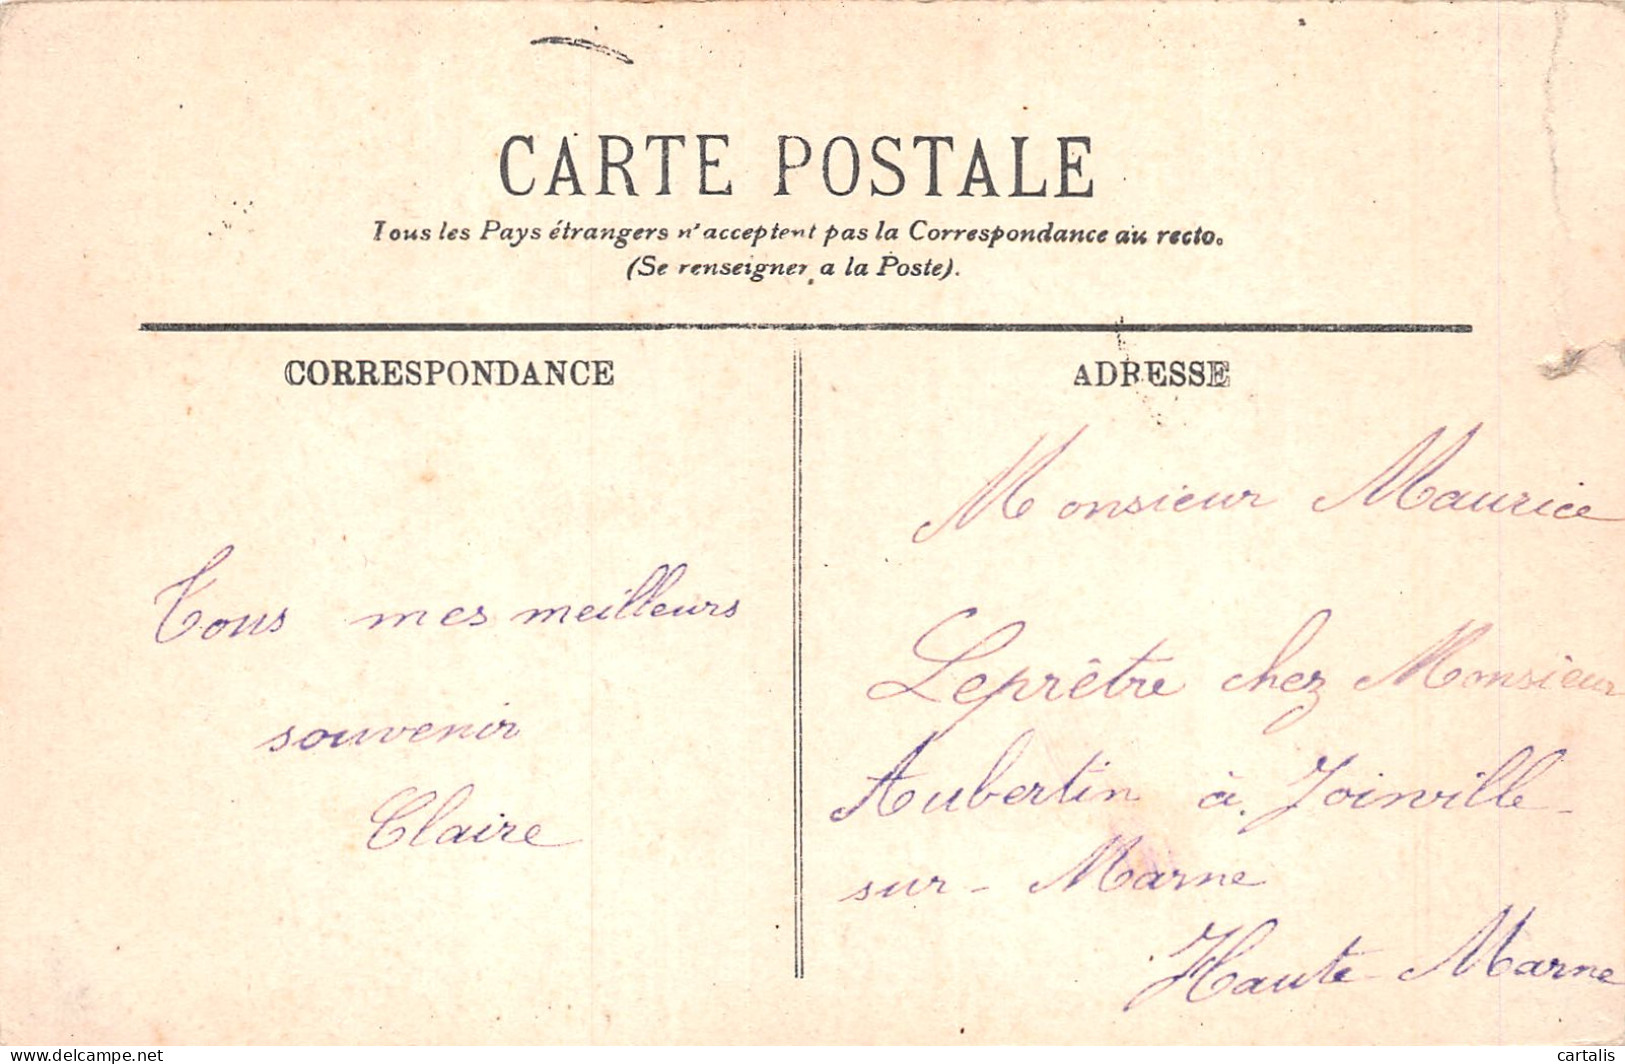 CARTE POSTALE
Tous les Pays étrangers n'acceptent pas la Correspondance au recto.
(Se renseigner a la Poste).
CORRESPONDANCE
Tous mes meilleurs
souvenir
Claire
ADRESSE
Monsieur Maurice
Leprêtre chez Monsieur
Aubertin à Joinville-
sur-Marne
Haute-Marne
delcampe.net
cartalis